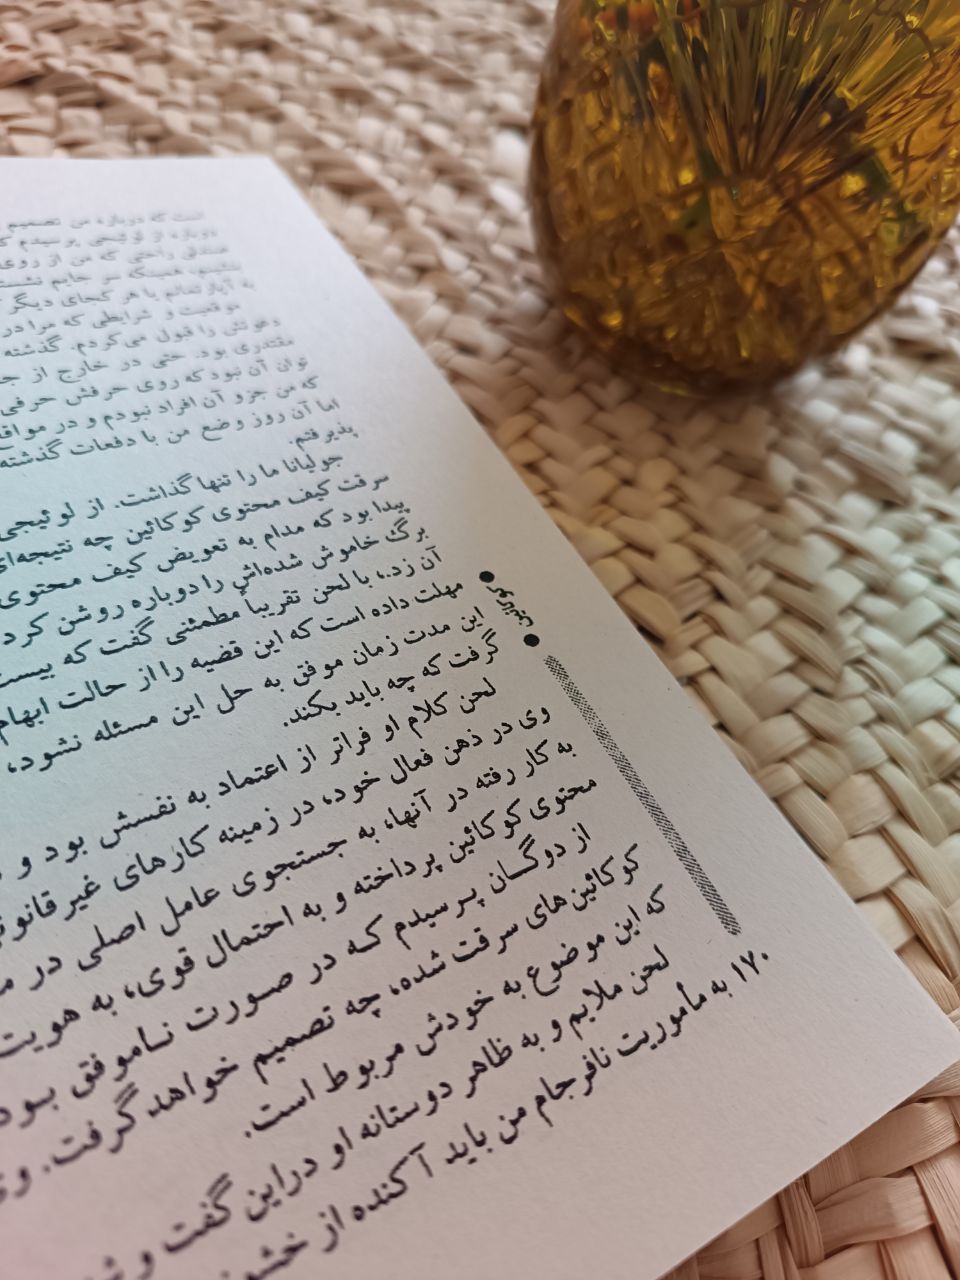 است که دوباره من تصمیم
دوباره از لوئیجی پرسیدم
صندلی راحتی که من از روی
همینکه سر جایم نشست
به آپارتمانم یا هر کجای دیگر
موقعیت و شرایطی که مرا در
دعوتش را قبول می‌کردم. گذشته
مقتدری بود. حتی در خارج از
توان آن نبود که روی حرفش حرفی
که من جزو آن افراد نبودم و در مواقع
اما آن روز وضع من با دفعات گذشته
پذیرفتم.
جولیانا ما را تنها گذاشت. از لوئیجی
سرقت کیف محتوی کوکائین چه نتیجه‌ای
پیدا بود که مدام به تعویض کیف محتوی
برگ خاموش شده‌اش را دوباره روشن کرد
آن زد، با لحن تقریباً مطمئنی گفت که بیست
مهلت داده است که این قضیه را از حالت ابهام
این مدت زمان موفق به حل این مسئله نشود،
گرفت که چه باید بکند.
لحن کلام او فراتر از اعتماد به نفسش بود و
وی در ذهن فعال خود، در زمینه کارهای غیرقانونی
به کار رفته در آنها، به جستجوی عامل اصلی در
محتوی کوکائین پرداخته و به احتمال قوی، به هویت
از دوگان پرسیدم که در صورت ناموفق بود
کوکائین‌های سرقت شده، چه تصمیم خواهد گرفت. وی
که این موضوع به خودش مربوط است.
لحن ملایم و به ظاهر دوستانه او دراین گفت و
به مأموریت نافرجام من باید آکنده از
۱۷۰